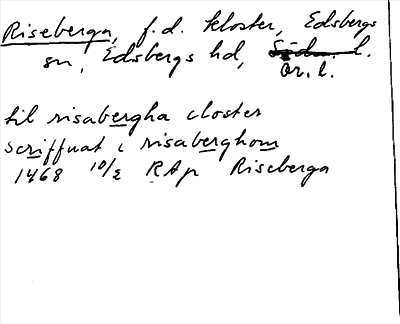 Riseberga, f.d. kloster, Edsbergs
sn, Edsbergs hd, Söda. l.
Ör. l.
til risabergha closter
scriffuat i risaberghom
1468 10/2 RAp Riseberga